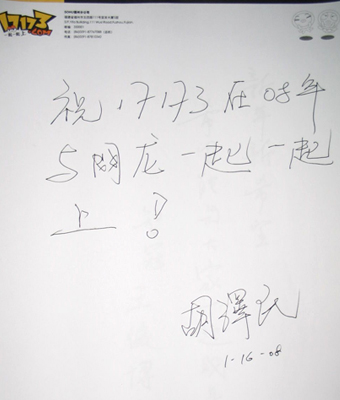 17173
.COM
祝17173在08年
与网龙一起一起
上！
胡泽民
1-16-08